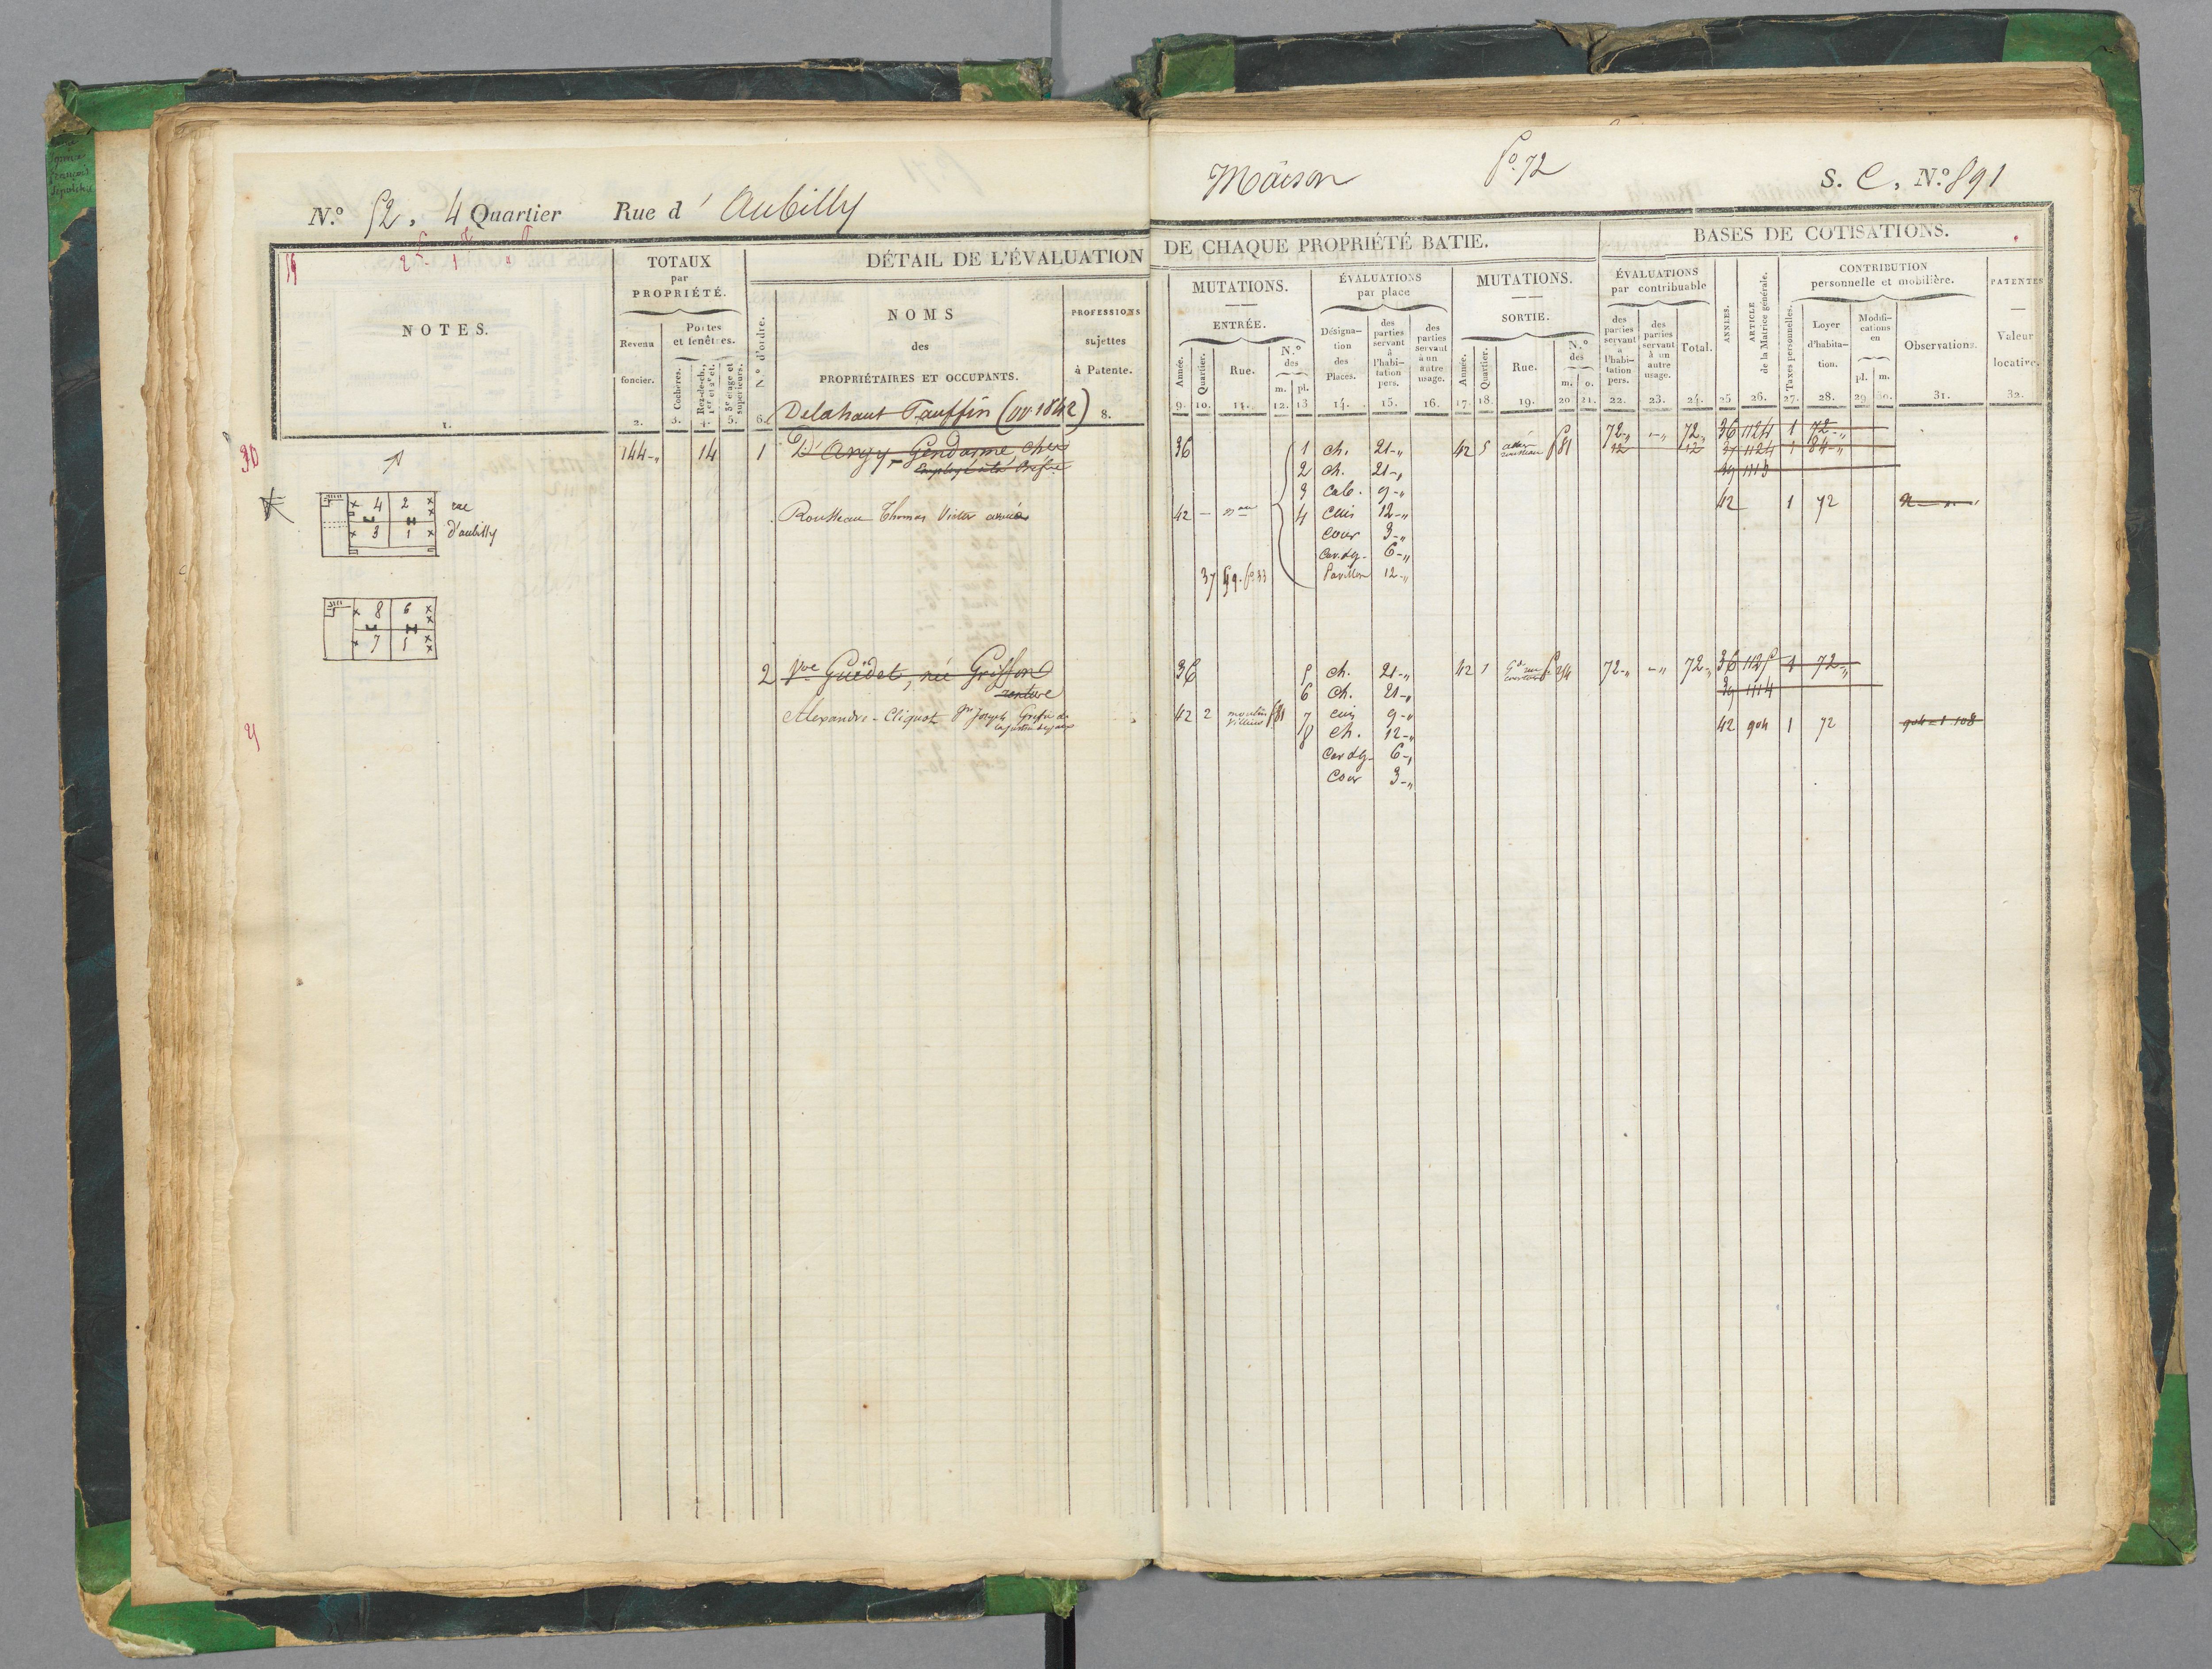 N.º 52. 4 Quartier Rue d' Aubilly
Maison fº 72 S. C, N.º 891
NOTES.
TOTAUX
par
PROPRIÉTÉ.
Revenu
foncier.
Portes
et fenêtres.
Cochères.
Rez-de-ch.,
1er et 2e ét.
3e étage et
supérieurs.
N.º d'ordre.
DÉTAIL DE L'ÉVALUATION
NOMS
des
PROPRIÉTAIRES ET OCCUPANTS.
PROFESSIONS
sujettes
à Patente.
1. 2. 3. 4. 5. 6. 8.
DE CHAQUE PROPRIÉTÉ BATIE.
MUTATIONS.
ENTRÉE.
Année. Quartier. Rue. N.º des m. pl.
ÉVALUATIONS
par place
Désigna-
tion
des
Places.
des
parties
servant
à
l'habi-
tation
pers.
des
parties
servant
à un
autre
usage.
MUTATIONS.
SORTIE.
Année. Quartier. Rue. N.º des m. o.
9. 10. 11. 12. 13 14. 15. 16. 17. 18. 19. 20 21.
BASES DE COTISATIONS.
ÉVALUATIONS
par contribuable
des
parties
servant
à
l'habi-
tation
pers.
des
parties
servant
à un
autre
usage.
Total.
ANNÉES.
ARTICLE
de la Matrice générale.
CONTRIBUTION
personnelle et mobilière.
Taxes personnelles.
Loyer
d'habita-
tion.
Modifi-
cations
en
pl. m.
Observations.
PATENTES
Valeur
locative.
22. 23. 24. 25 26. 27. 28. 29 30. 31. 32.
Delahaut Tauffin (vv 1842)
144-" 14 1 D'Argy Gendarme
36 1 ch. 21-" 42 5 81 72-" -" 72-" 36 1124 1 72-"
2 ch. 21-" 12 12 37 1124 1 84-"
3 cab. 9-" 39 1113
Rousseau Thomas Victor
42 - 4 Cuis 12-" 42 1 72
cour 3-"
Cav. 6-"
37 Pavillon 12-"
4 2
3 1
rue
d'aubilly
8 6
7 5
2 Vve Guédet, née Griffon
rentière
36 5 ch. 21-" 42 1 72-" -" 72-" 36 1125 1 72-"
6 ch. 21-" 39 1114
Alexandre-Cliquot Joseph
42 2 moulin 7 cuis 9-" 42 904 1 72
8 ch. 12-"
Cav 6-"
Cour 3-"